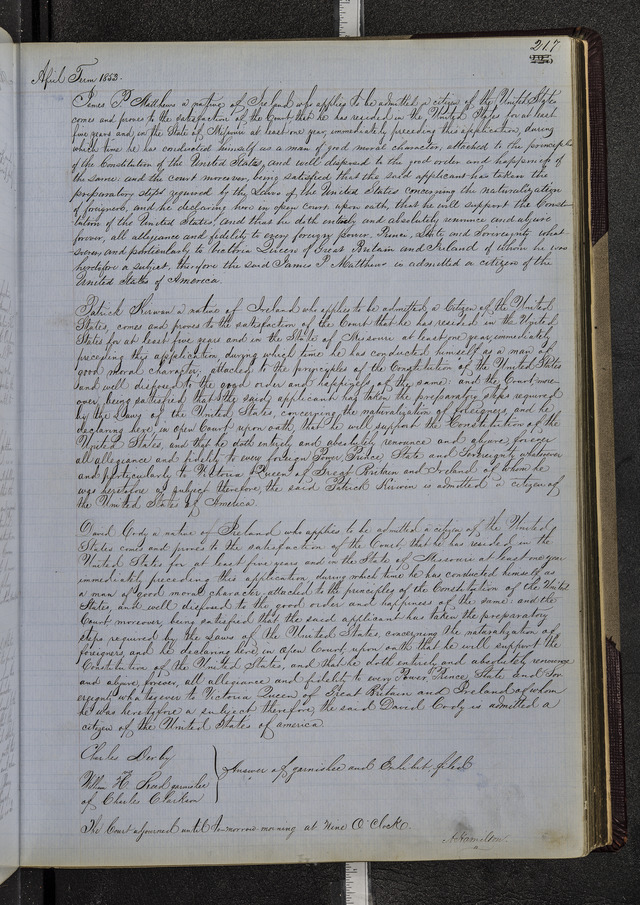 217
April Term 1853.
James P Matthews a native of Ireland who applies to be admitted a citizen of the United States
comes and proves to the satisfaction of the Court that he has resided in the United States for at least
five years and in the State of Missouri at least one year, immediately preceding this application, during
which time he has conducted himself as a man of good moral character, attached to the principles
of the Constitution of the United States, and well disposed to the good order and happiness of
the same: and the court moreover being satisfied that the said applicant has taken the
preparatory steps required by the Laws of the United States concerning the naturalization
of foreigners, and he declaring here in open court, upon oath, that he will support the Consti-
tution of the United States, and that he doth entirely and absolutely renounce and abjure
forever, all allegiance and fidelity to every foreign power, Prince, State and Sovereignty what-
soever, and particularly to Victoria Queen of Great Britain and Ireland of whom he was
heretofore a subject, therefore the said James P. Matthews is admitted a citizen of the
United States of America.
Patrick Kirwan a native of Ireland who applies to be admitted a Citizen of the United
States, comes and proves to the satisfaction of the Court that he has resided in the United
States for at least five years and in the State of Missouri at least one year, immediately
preceding this application, during which time he has conducted himself as a man of
good moral character, attached to the principles of the Constitution of the United States
and well disposed to the good order and happiness of the same: and the Court more-
over, being satisfied that the said applicant has taken the preparatory steps required
by the Laws of the United States, concerning the naturalization of foreigners, and he
declaring here, in open Court upon oath, that he will support the Constitution of the
United States, and that he doth entirely and absolutely renounce and abjure forever
all allegiance and fidelity to every foreign Power, Prince, State and Sovereignty whatsoever
and particularly to Victoria Queen of Great Britain and Ireland of whom he
was heretofore a subject therefore, the said Patrick Kirwan is admitted a citizen of
the United States of America.
David Cody a native of Ireland who applies to be admitted a citizen of the United
States comes and proves to the satisfaction of the Court, that he has resided in the
United States for at least five years and in the State of Missouri at least one year
immediately preceding this application, during which time he has conducted himself as
a man of good moral character attached to the principles of the Constitution of the United
States, and well disposed to the good order and happiness of the same: and the
Court moreover, being satisfied that the said applicant has taken the preparatory
steps required by the Laws of the United States, concerning the naturalization of
foreigners, and he declaring here, in open Court, upon oath that he will support the
Constitution of the United States, and that he doth entirely and absolutely renounce
and abjure, forever, all allegiance and fidelity to every Power, Prince, State and Sov-
ereignty whatsoever to Victoria Queen of Great Britain and Ireland of whom
he was heretofore a subject therefore, the said David Cody is admitted a
citizen of the United States of america.
Charles Derby
William H. garnishee
of Charles Clarkson
Answer of garnishee and Exhibit filed
The Court adjourned until to-morrow morning at Nine O'Clock.
A Hamilton